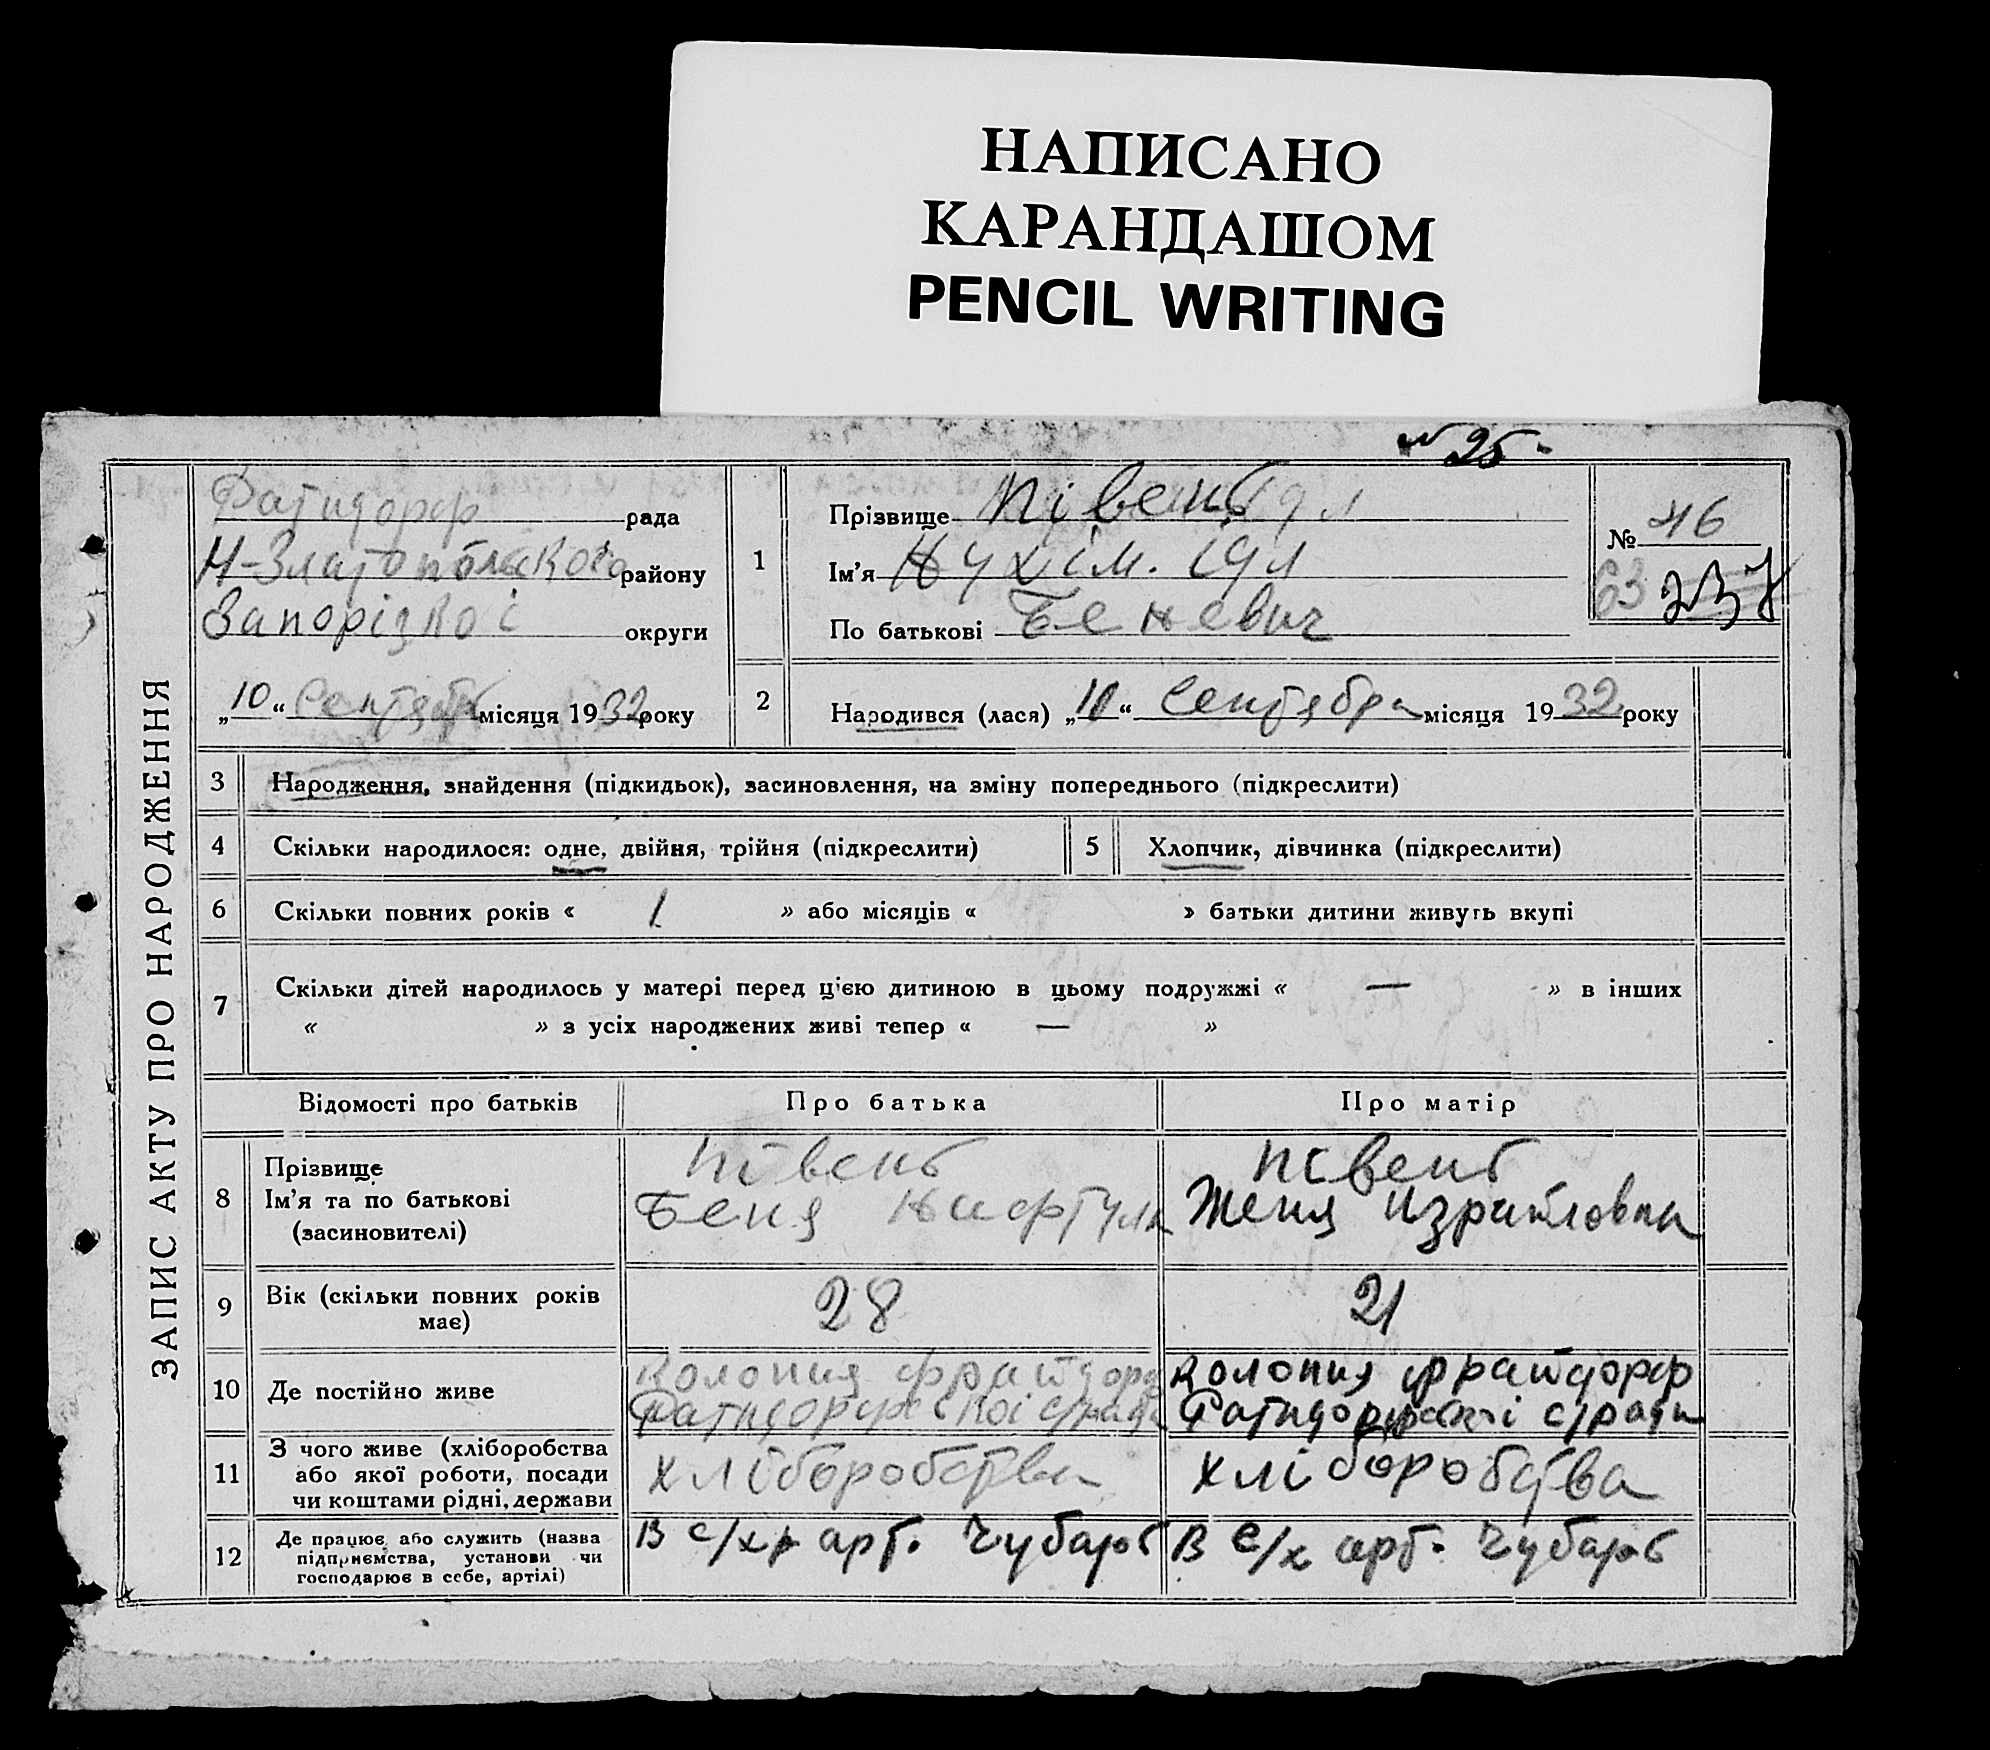 НАПИСАНО
КАРАНДАШОМ
PENCIL WRITING
25
ЗАПИС АКТУ ПРО НАРОДЖЕННЯ
Ратндорф рада
Н-Златопольского району
Запорізкоі округи
„10“ Сентября місяця 1932 року
1
Прізвище Півень
Ім'я Нухім. Ідл
По батькові Беневич
№ 46
63
2
Народився (лася) „10“ Сентября місяця 1932 року
3 Народження, знайдення (підкидьок), засиновлення, на зміну попереднього (підкреслити)
4 Скільки народилося: одне, двійня, трійня (підкреслити) 5 Хлопчик, дівчинка (підкреслити)
6 Скільки повних років « 1 » або місяців « » батьки дитини живуть вкупі
7 Скільки дітей народилось у матері перед цією дитиною в цьому подружжі « — » в інших
« » з усіх народжених живі тепер « — »
Відомості про батьків Про батька Про матір
8
Прізвище
Ім'я та по батькові
(засиновителі)
Півень
Беня Нафтул
Півень
Женя Израиловна
9 Вік (скільки повних років
має)
28
21
10 Де постійно живе
Колония фрайдорф
Ратндорфскоі с/ради
Колония фрайдорф
Ратндорфскоі с/ради
11
З чого живе (хліборобства
або якої роботи, посади
чи коштами рідні, держави
Хліборобства
Хліборобства
12
Де працює або служить (назва
підприємства, установи чи
господарює в себе, артілі)
В с/х арт. Чубарь
В с/х арт. Чубарь